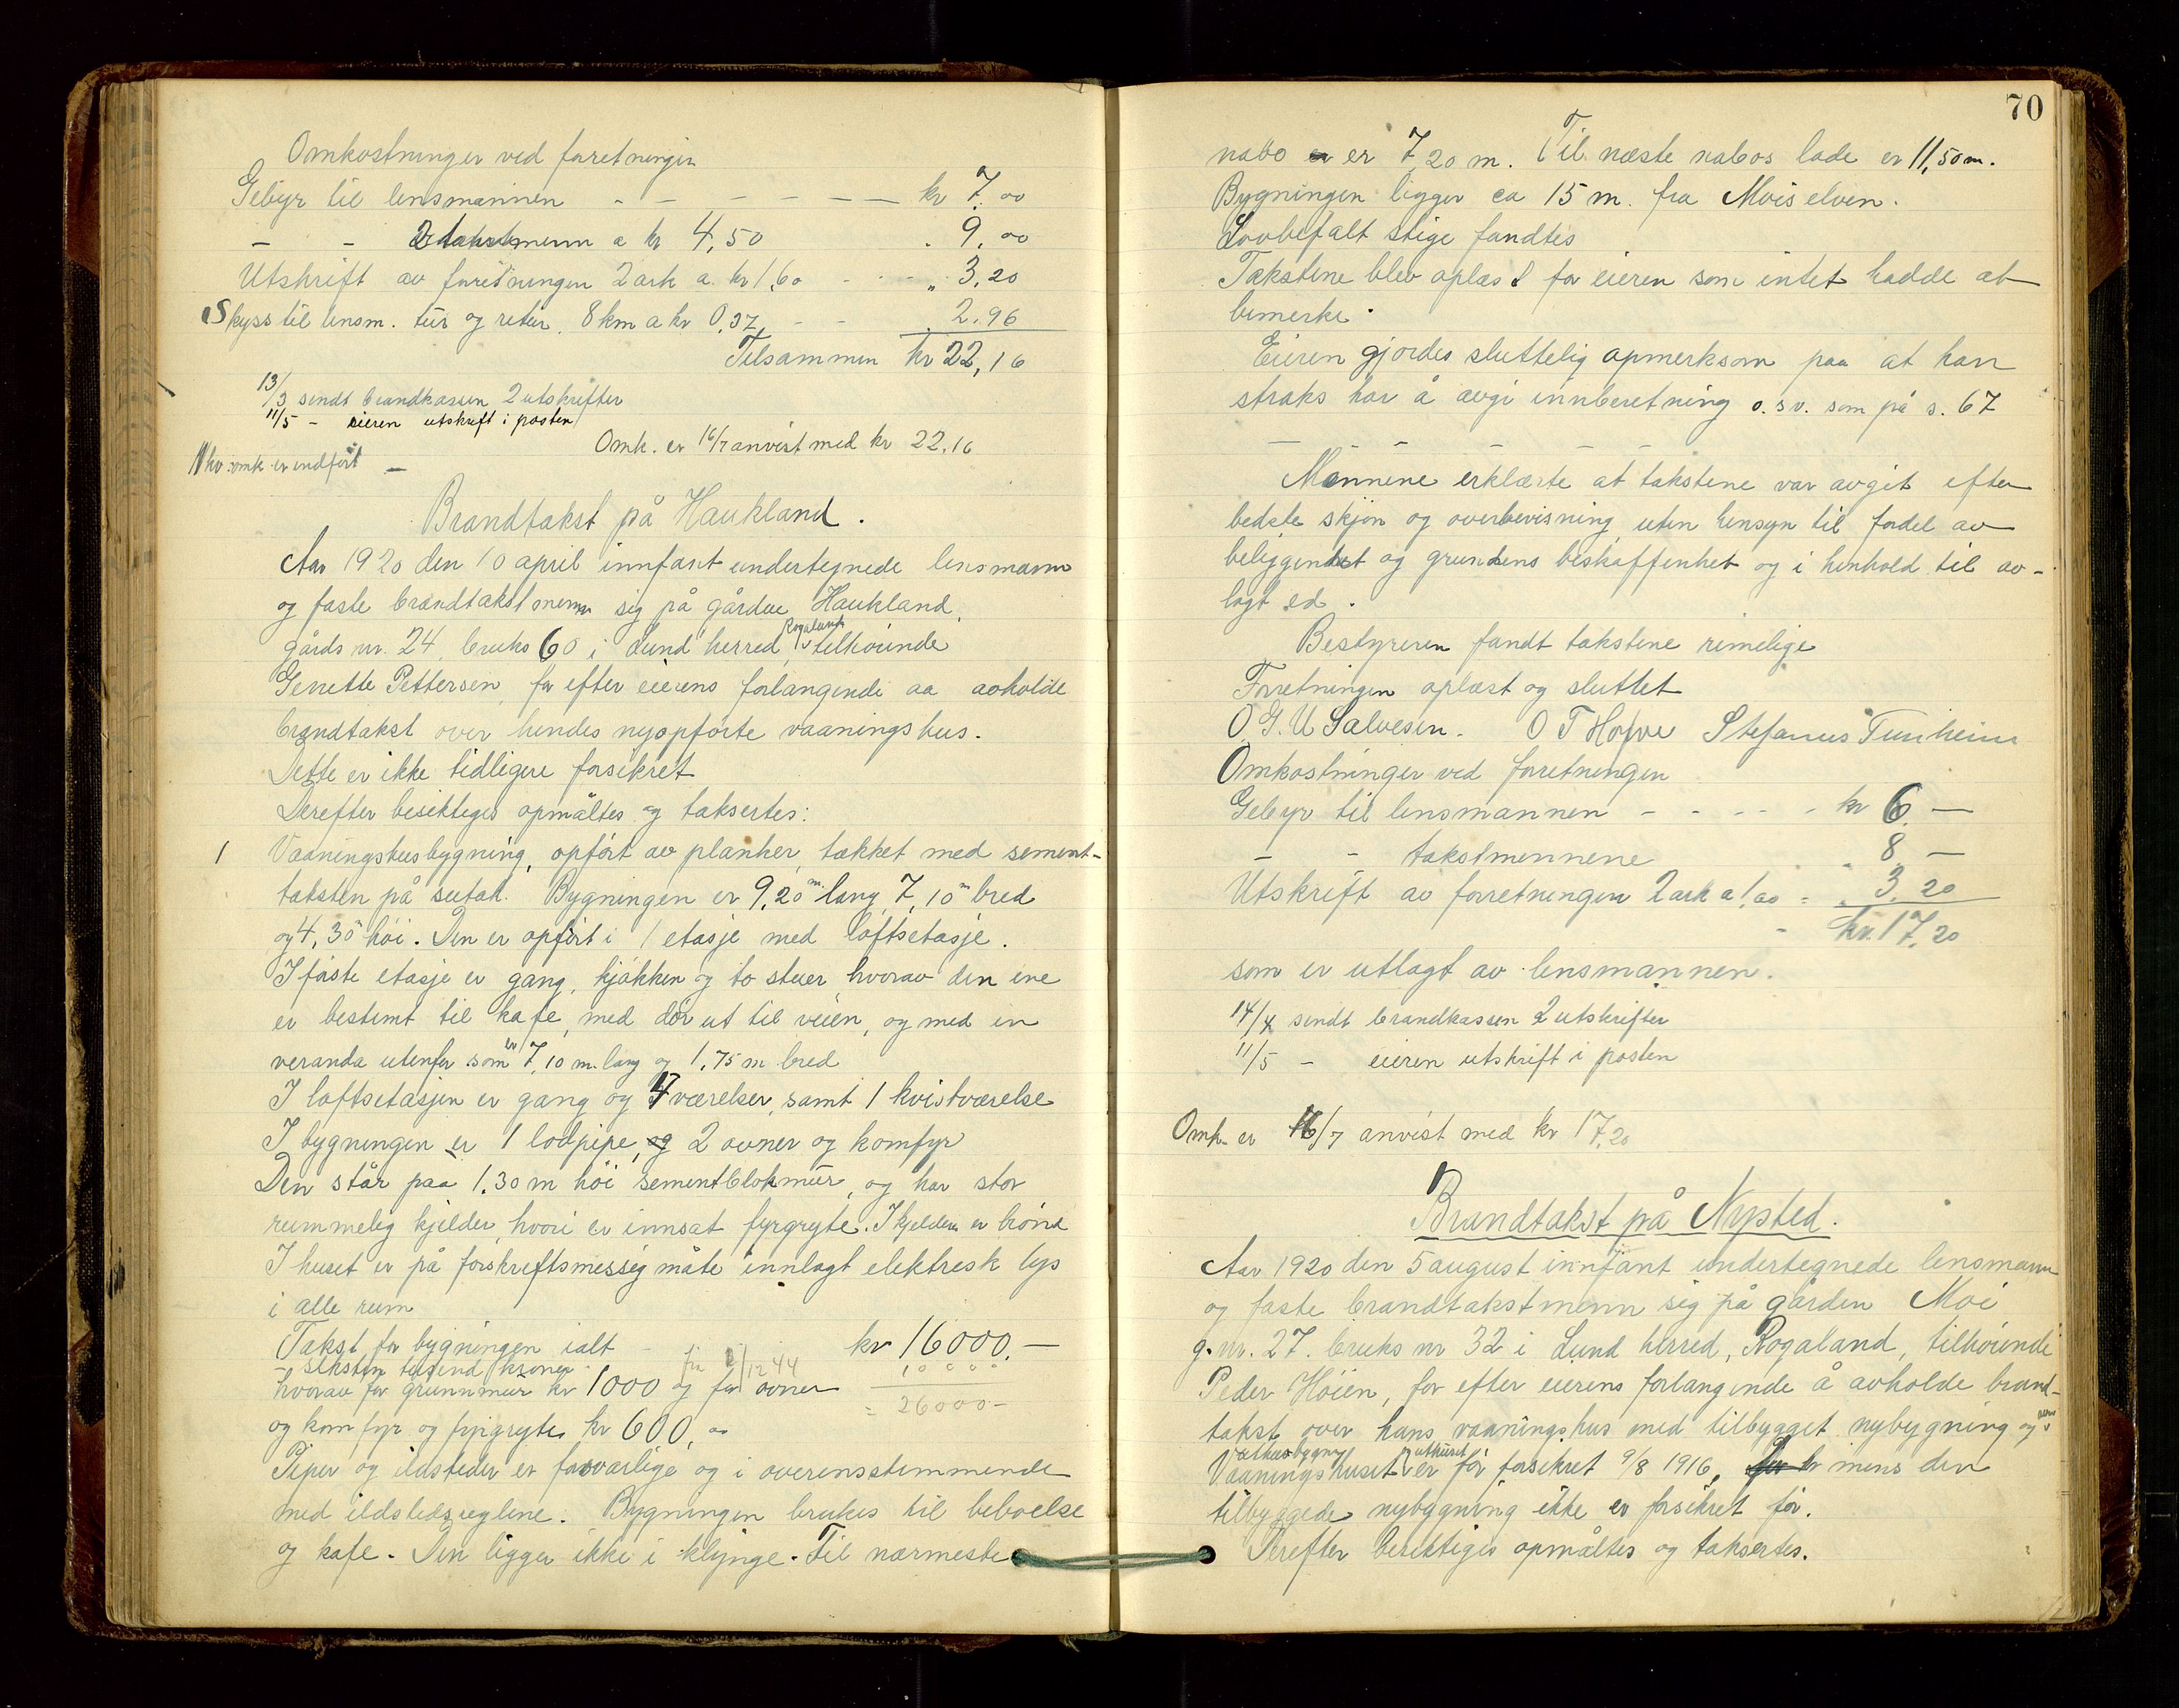 Omkostninger ved forretningen
Gebyr til lensmannen - - - - - - kr 7.00
- - 2 takstmenn a kr 4,50 " 9.00
Utskrift av forretningen 2 ark a kr 1,60 - - " 3,20
Skyss til lensm. tur og retur 8 km a kr 0,37, - - 2.96
Tilsammen kr 22,16
13/3 sendt brandkassen 2 utskrifter
11/5 - eieren utskrift i posten
Omk. er 16/7 anvist med kr 22.16
omk er indført -
Brandtakst på Haukland.
Aar 1920 den 10 april innfant undertegnede lensmann
og faste brandtakstmenn sig på gården Haukland,
gårds nr. 24, bruks 60 i Lund herred, Rogaland tilhørende
Pettersen, for efter eierens forlangende aa avholde
brandtakst over hendes nyopførte vaaningshus.
Dette er ikke tidligere forsikret
Derefter besiktiges opmåltes og taksertes:
1 Vaaningshusbygning, opført av planker, tækket med sement-
taksten på sutak. Bygningen er 9,20 m lang 7,10 m bred
og 4,30 m høi. Den er opført i 1 etasje med loftsetasje.
I føste etasje er gang, kjøkken og to stuer hvorav den ene
er bestemt til kafe, med dør ut til veien, og med en
veranda utenfor som er 7,10 m. lang og 1,75 m bred
I loftsetasjen er gang og 4 værelser, samt 1 kvistværelse
I bygningen er 1 lodpipe, og 2 ovner og komfyr
Den står paa 1.30 m høi sementblokmur, og har stor
rummelig kjelder, hvori er innsat fyrgryte. I kjelderen er brønd
I huset er på forskriftsmessig måte innlagt elektresk lys
i alle rum
Takst for bygningen ialt - kr 16000.-
- seksten tusend kroner - fra /12 44 10000
hvorav for grunnmur kr 1000 og for ovner = 26000-
og komfyr og fyrgryte kr 600,00
Piper og ildsteder er forsvarlige og i overensstemmende
med ildstedsreglene. Bygningen brukes til beboelse
og kafe. Den ligger ikke i klynge. Til nærmeste
70
nabo er er 7,20 m. Til næste nabos lade er 11,50 m.
Bygningen ligger ca 15 m. fra Mois elven.
Lovbefalt stige fandtes
Takstene blev oplæst for eieren som intet hadde at
bemerke.
Eieren gjordes sluttelig opmerksom paa at han
straks har å avgi innberetning o.s.v. som på s. 67
- - - - -
Mennene erklærte at takstene var avgit efter
bedste skjøn og overbevisning uten hensyn til fordel av
beliggenhet og grundens beskaffenhet og i henhold til av-
lagt ed.
Bestyreren fandt takstene rimelige
Forretningen oplæst og sluttet
O.G.U Salvesen. O T Hofve Stefanus Tunheim
Omkostninger ved forretningen
Gebyr til lensmannen - - - - - kr 6.-
- - takstmennene " 8.-
Utskrift av forretningen 2 ark a 1,60 = " 3.20
- kr. 17,20
som er utlagt av lensmannen.
14/4 sendt brandkassen 2 utskrifter
11/5 - eieren utskrift i posten
Omk er 16/7 anvist med kr 17.20
Brandtakst på Nysted.
Aar 1920 den 5 august innfant undertegnede lensmann
og faste brandtakstmenn sig på gården Moi
g.nr. 27. bruks nr 32 i Lund herred, Rogaland, tilhørende
Peder Høien, for efter eierens forlangende å avholde brand-
takst over hans vaaningshus med tilbygget nybygning og
uthusbygning
Vaaningshuset uthuset er før forsikret 9/8 1916, mens den
tilbyggede nybygning ikke er forsikret før.
Derefter besiktiges opmåltes og taksertes.